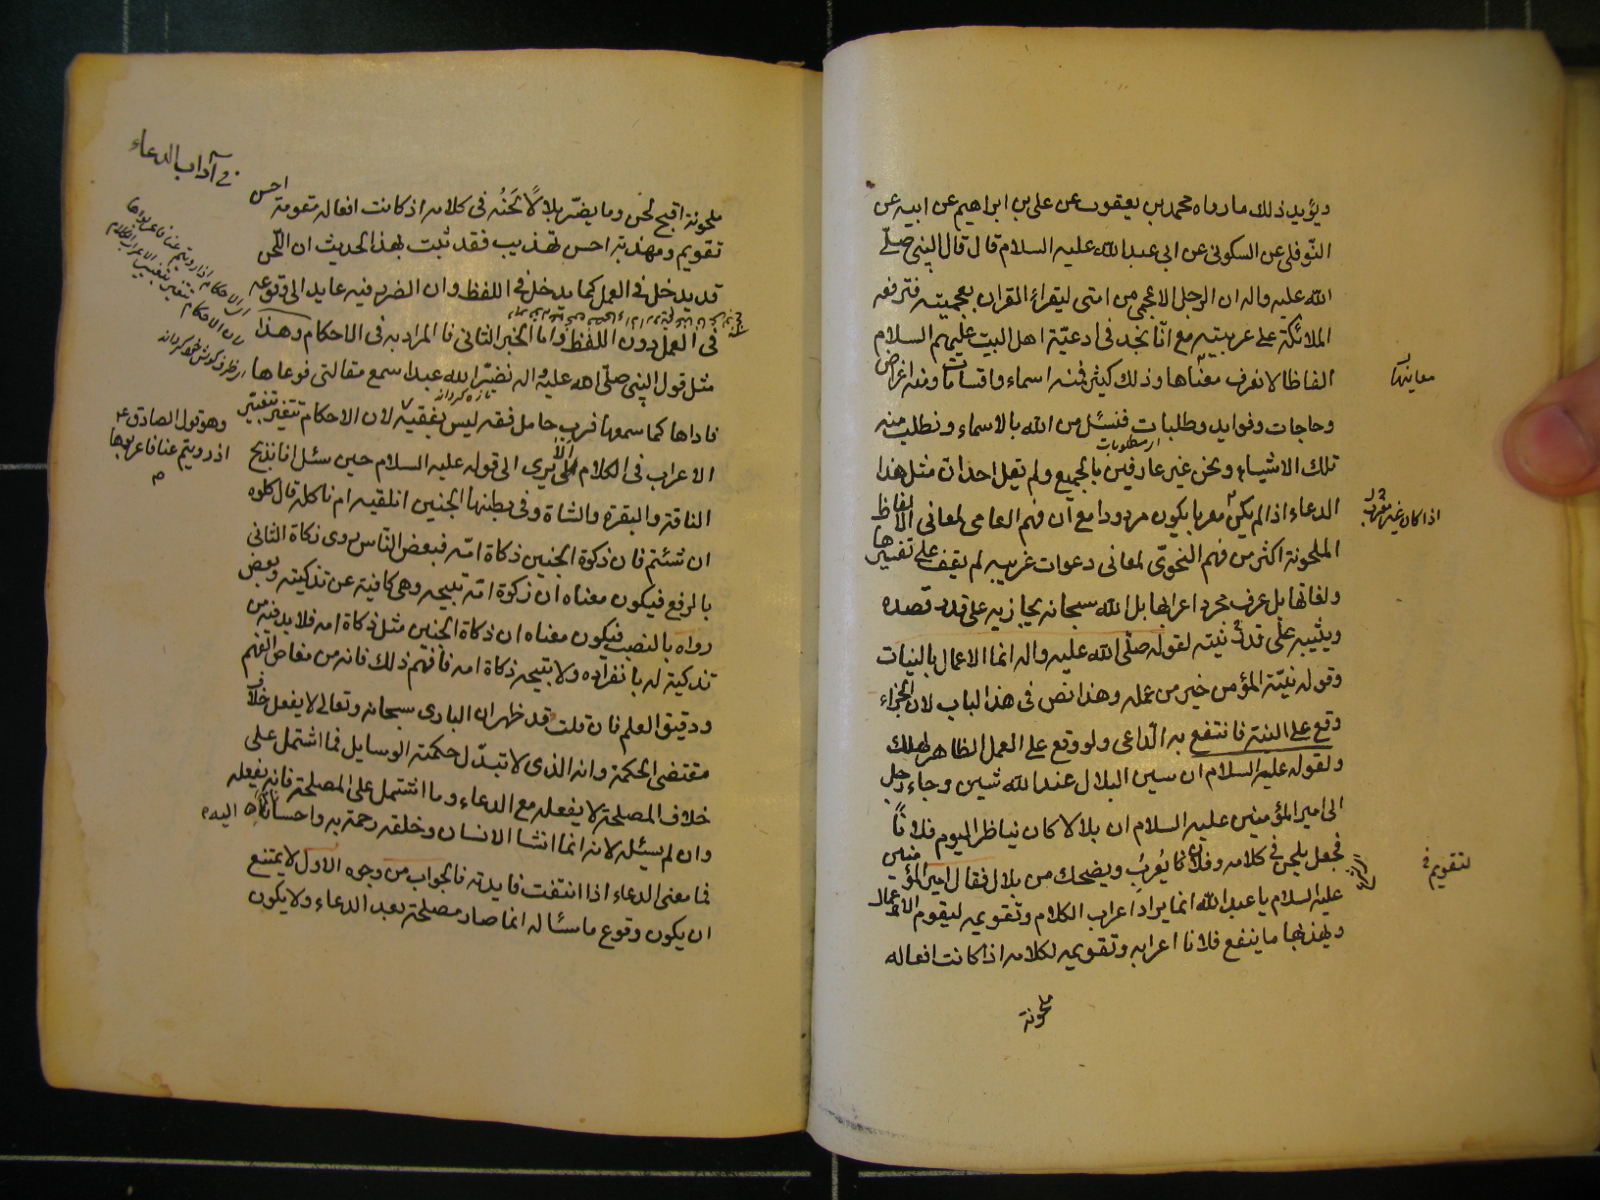 ويؤيد ذلك ما رواه محمد بن يعقوب عن علي بن ابراهيم عن ابيه عن
النوفلي عن السكوني عن ابي عبدالله عليه السلام قال قال النبي صلى
الله عليه واله ان الرجل الاعجمي من امتى ليقرأ القران بعجميته فترفعه
الملائكة على عربيته مع انا نجد في ادعية اهل البيت عليهم السلام
الفاظا لا نعرف معناها وذلك كثير فمنه اسماء واقسامات ومنه اغراض
معانيها
وحاجات وفوايد وطلبات فنسئل من الله بالاسماء ونطلب منه
تلك الاشياء ونحن غير عارفين بالجميع ولم يقل احد ان مثل هذا
الدعاء اذا لم يكن معربا يكون مردودا مع ان فهم العامى لمعانى الالفاظ
اذا كان غير معرب
الملحونة اكثر من فهم النحوى لمعانى دعوات غريبه لم يقف على تفسيرها
ولغاتها بل عرف مجرد اعرابها بل الله سبحانه يجازيه على قدر قصده
ويثيبه على قدر نيته لقوله صلى الله عليه واله انما الاعمال بالنيات
وقوله نية المؤمن خير من عمله وهذا نص في هذا الباب لان الجزاء
وقع على النية فانتفع به الداعى ولو وقع على العمل الظاهر لهلك
ولقوله عليه السلام ان سين البلال عند الله شين وجاء رجل
الى امير المؤمنين عليه السلام ان بلالا كان يناظر اليوم فلانا
فجعل يلحن في كلامه وفلان يعرب ويضحك من بلال فقال امير المؤمنين
عليه السلام يا عبدالله انما يراد اعراب الكلام وتقويمه ليقوم الاعمال
ويهذبها ما ينفع فلانا اعرابه وتقويمه لكلامه اذا كانت افعاله
ملحونة
في آداب الدعاء
ملحونة اقبح لحن وما يضر بلالا لحنه في كلامه اذ كانت افعاله مقومة احسن
تقويم ومهذبة احسن تهذيب فقد ثبت بهذا الحديث ان اللحن
قد يدخل في العمل كما يدخل في اللفظ وان الضرر فيه عايد الى وقوعه
في العمل دون اللفظ واما الخبر الثانى فالمراد به في الاحكام وهذا
مثل قول النبي صلى الله عليه واله نضر الله عبدا سمع مقالتى فوعاها
فاداها كما سمعها فرب حامل فقه ليس بفقيه لان الاحكام تتغير بتغير
وهو قول الصادق ع
اذ رويتم عنا فاعربوها
الاعراب في الكلام الا يرى الى قوله عليه السلام حين سئل انا نذبح
الناقة والبقرة والشاة وفي بطنها الجنين انلقيه ام ناكله قال كلوه
ان شئتم فان ذكوة الجنين ذكاة امه فبعض الناس يروى ذكاة الثانى
بالرفع فيكون معناه ان ذكوة امه تبيحه وهى كافية عن تذكيته وبعض
رواه بالنصب فيكون معناه ان ذكاة الجنين مثل ذكاة امه فلابد فيه من
تذكية له بانفراده ولا تبيحه ذكاة امه فافهم ذلك فانه من مغاص الفهم
ودقيق العلم فان قلت قد ظهر ان البارى سبحانه وتعالى لا يفعل خلاف
مقتضى الحكمة وانه الذى لا تبدل حكمته الوسايل فما اشتمل على
خلاف المصلحة لا يفعله مع الدعاء وما اشتمل على المصلحة فانه يفعله
وان لم يسئله لانه انما انشا الانسان وخلقه رحمة به واحسانا اليه
فما معنى الدعاء اذا انتفت فايدته فالجواب من وجوه الاول لا يمتنع
ان يكون وقوع ما سئاله انما صار مصلحة بعد الدعاء ولا يكون